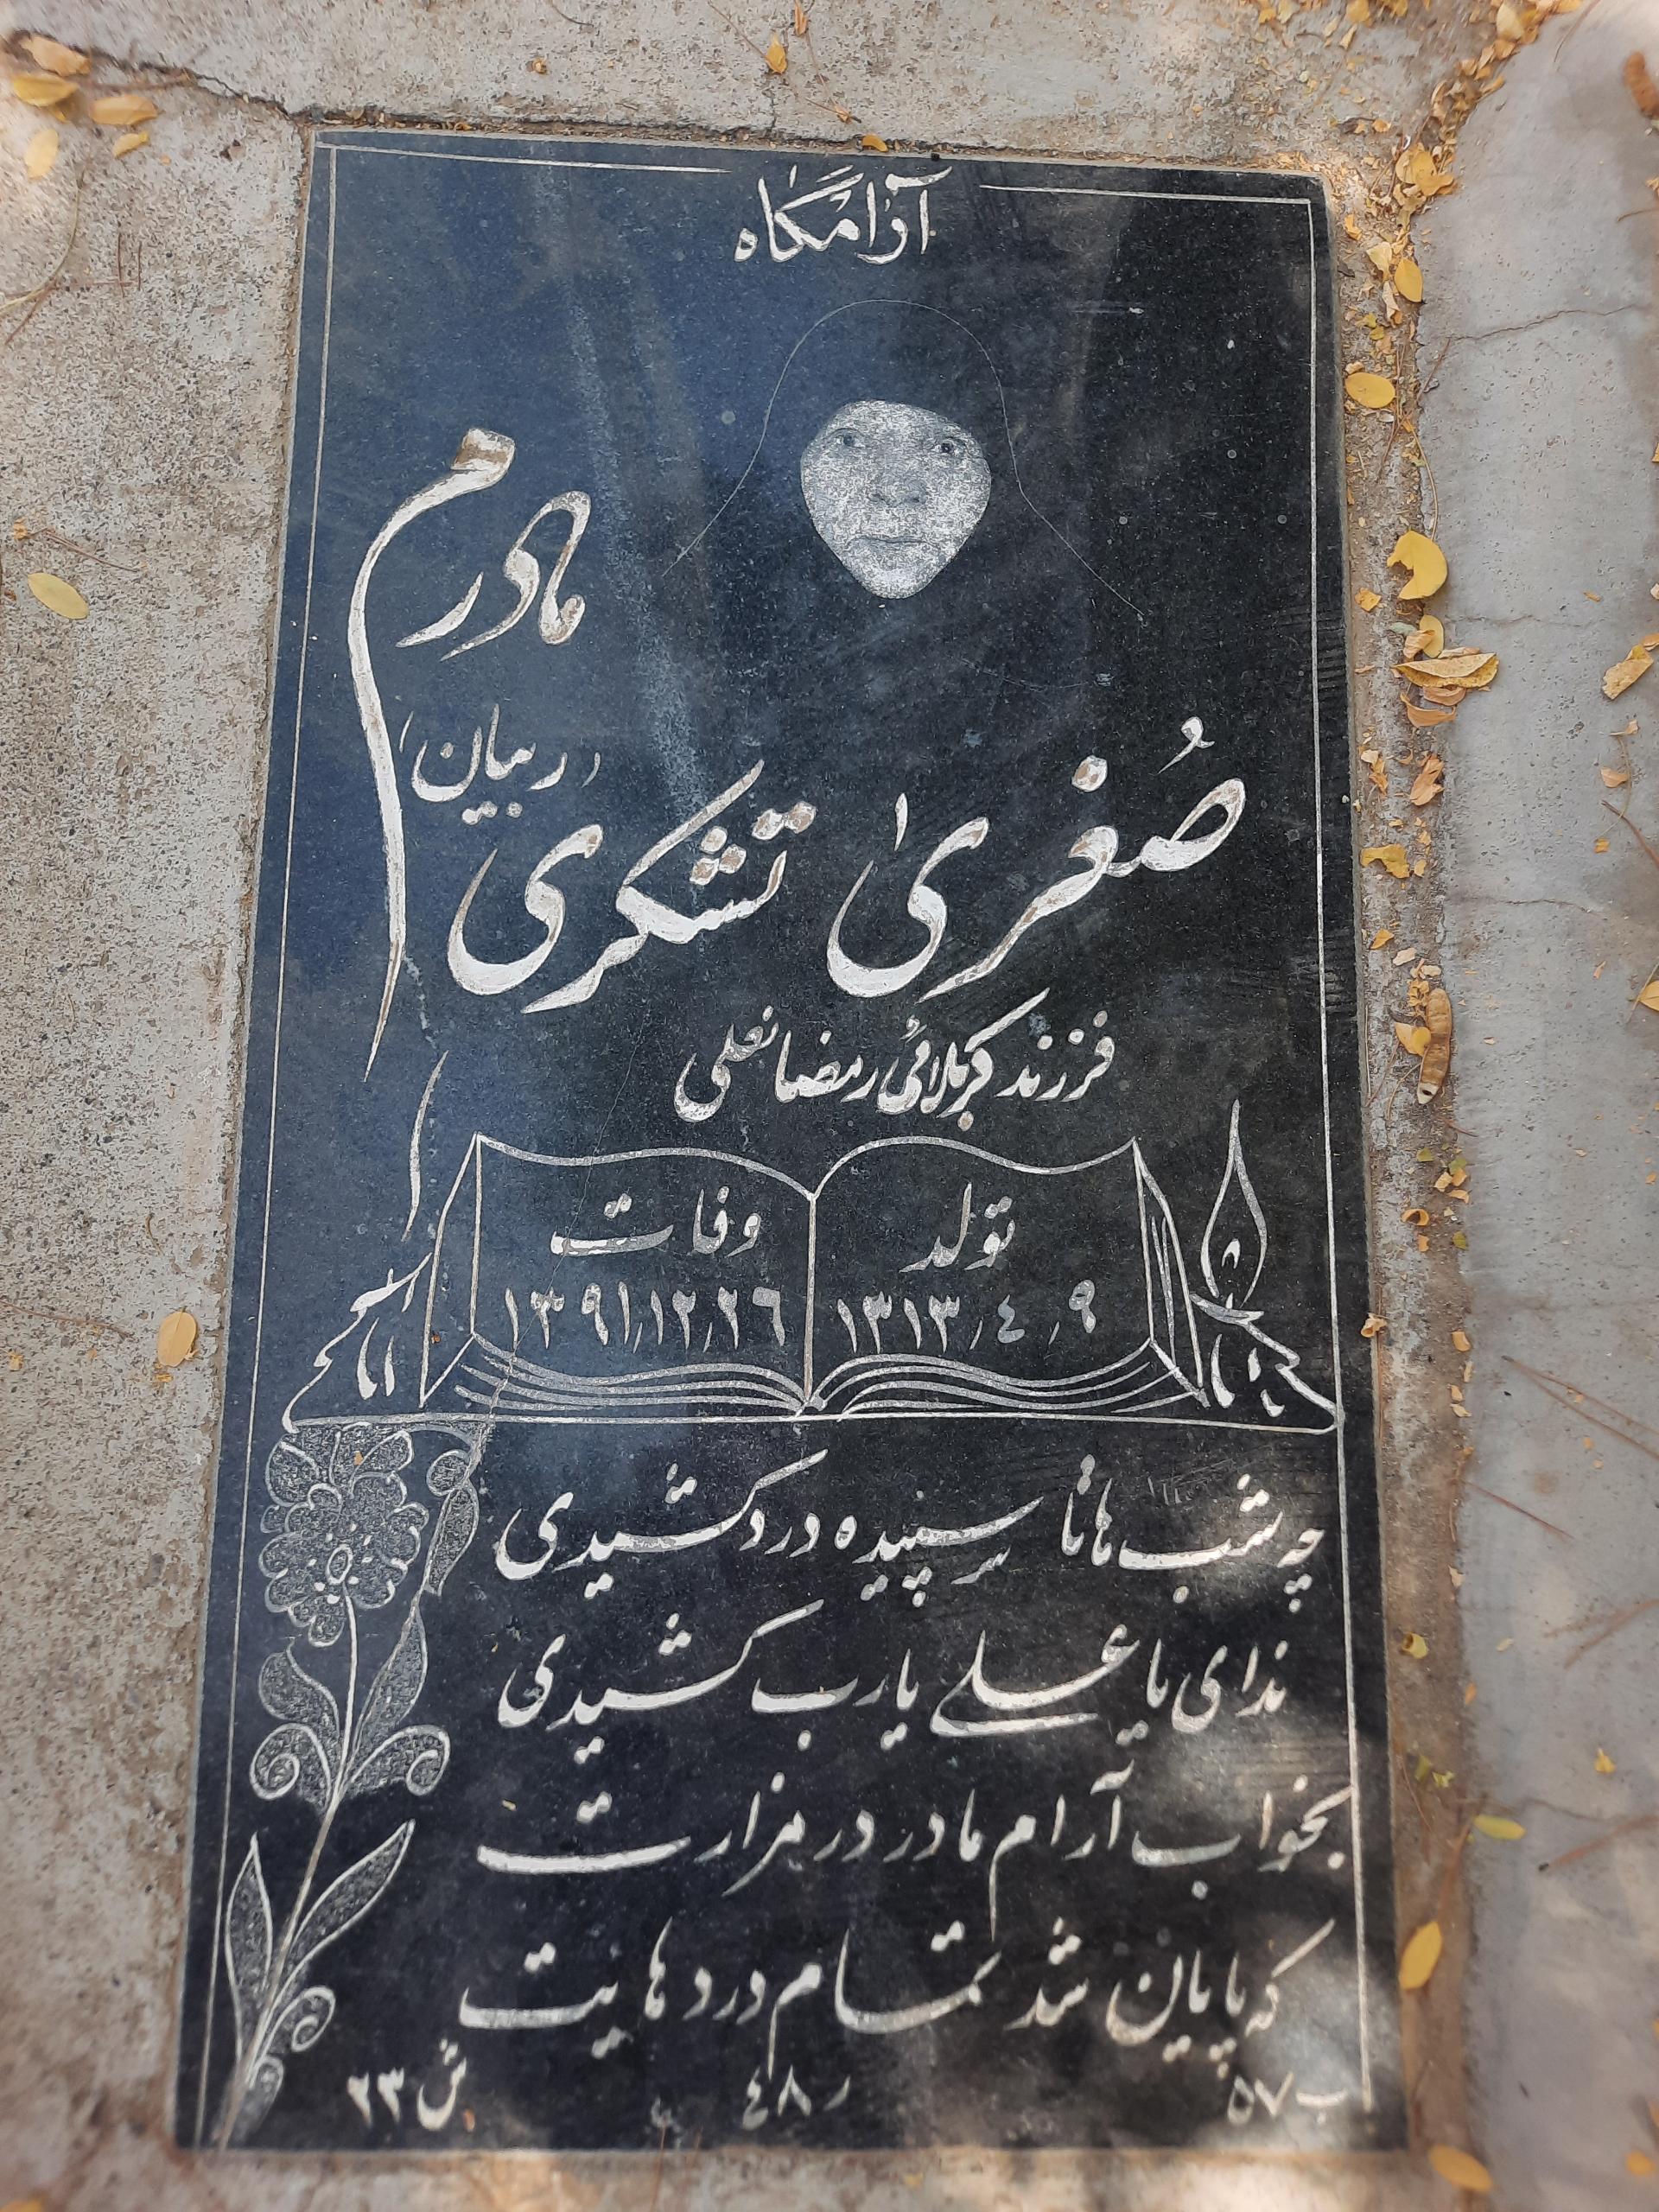 آرامگاه
مادرم
صُغریٰ تشکری
(ربیان)
فرزند کربلائی رمضانعلی
تولد
وفات
۱۳۱۳٫٤٫۹
۱۳۹۱٫۱۲٫۲٦
چه شب ها تا سپیده درد کشیدی
ندای یا علی یارب کشیدی
بخواب آرام مادر در مزارت
که پایان شد تمام درد هایت
ب ۵۷
ر ٤۸
ش ۲۳